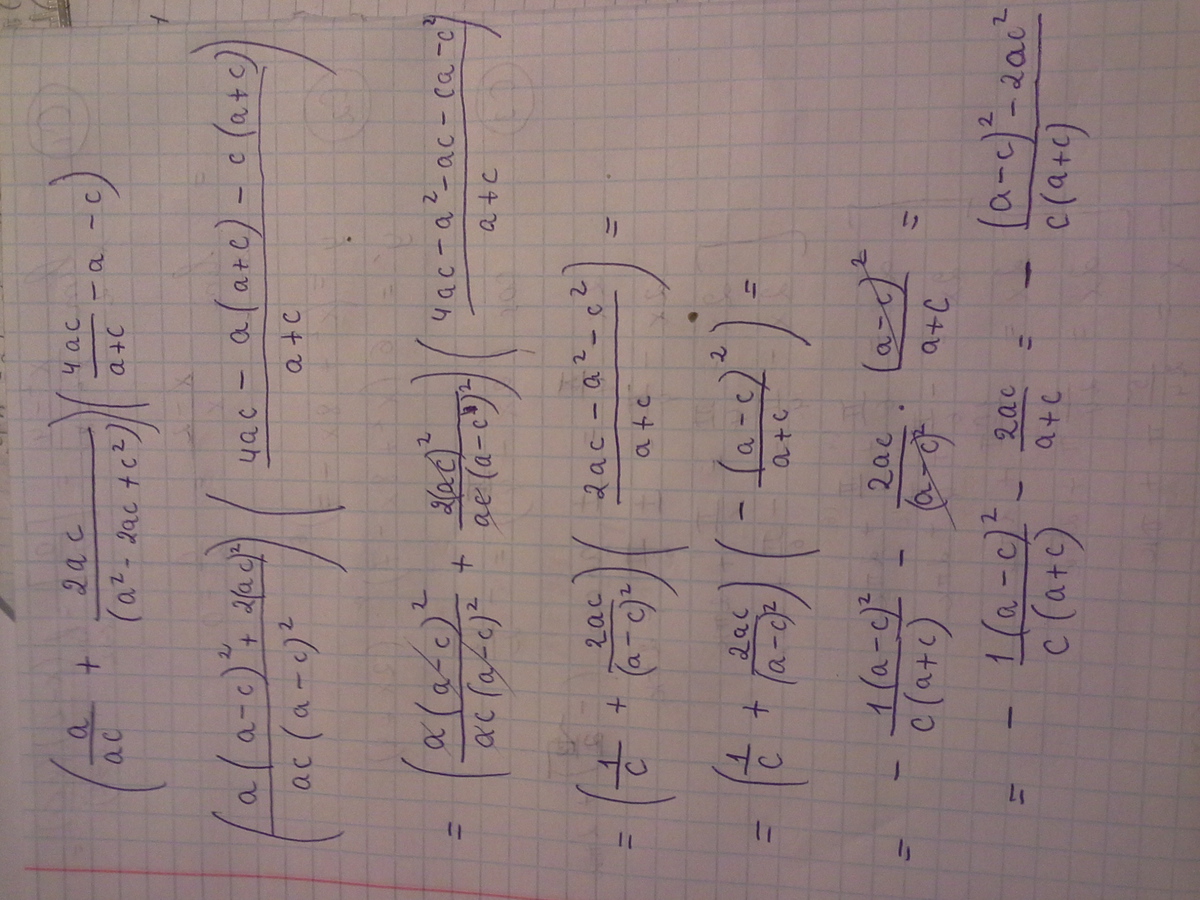 (a/ac + 2ac/(a²-2ac+c²))(4ac/a+c - a - c)
(a(a-c)²+2(ac)²/ac(a-c)²)(4ac - a(a+c) - c(a+c)/a+c)
= (a(a-c)²/ac(a-c)² + 2(ac)²/ac(a-c)²)(4ac-a²-ac-ca-c²/a+c)
= (1/c + 2ac/(a-c)²)(2ac-a²-c²/a+c) =
= (1/c + 2ac/(a-c)²)(- (a-c)²/a+c) =
= - 1(a-c)²/c(a+c) - 2ac/(a-c)² · (a-c)²/a+c =
= - 1(a-c)²/c(a+c) - 2ac/a+c = - (a-c)²-2ac²/c(a+c)